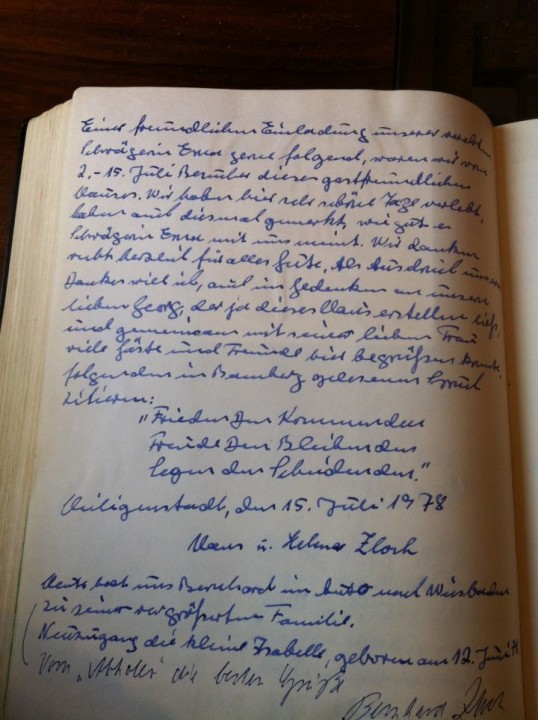 Einer freundlichen Einladung unserer verehrten
Schwägerin Erna gerne folgend, waren wir vom
2.-15. Juli Besucher dieses gastfreundlichen
Hauses. Wir haben hier sehr schöne Tage verlebt,
haben auch diesmal gemerkt, wie gut es
Schwägerin Erna mit uns meint. Wir danken
recht herzlich für alles Gute. Als Ausdruck unseres
Dankes will ich, auch im Gedenken an unseren
lieben Georg, der ja dieses Haus erstellen ließ,
und gemeinsam mit seiner lieben Frau
viele Gäste und Freunde hier begrüßen konnte,
folgenden in Bamberg gelesenen Spruch
zitieren:
"Friede Den Kommenden
Freude Den Bleibenden
Segen den Scheidenden."
Heiligenstadt, den 15. Juli 1978
Hans u. Helma Zloch
Heute holt uns Bernhard im Auto nach Wiesbaden
zu seiner vergrößerten Familie.
(Neuzugang die kleine Isabelle, geboren am 12. Juni 78
Vom "Abholer" die besten Grüße
Bernhard Zloch